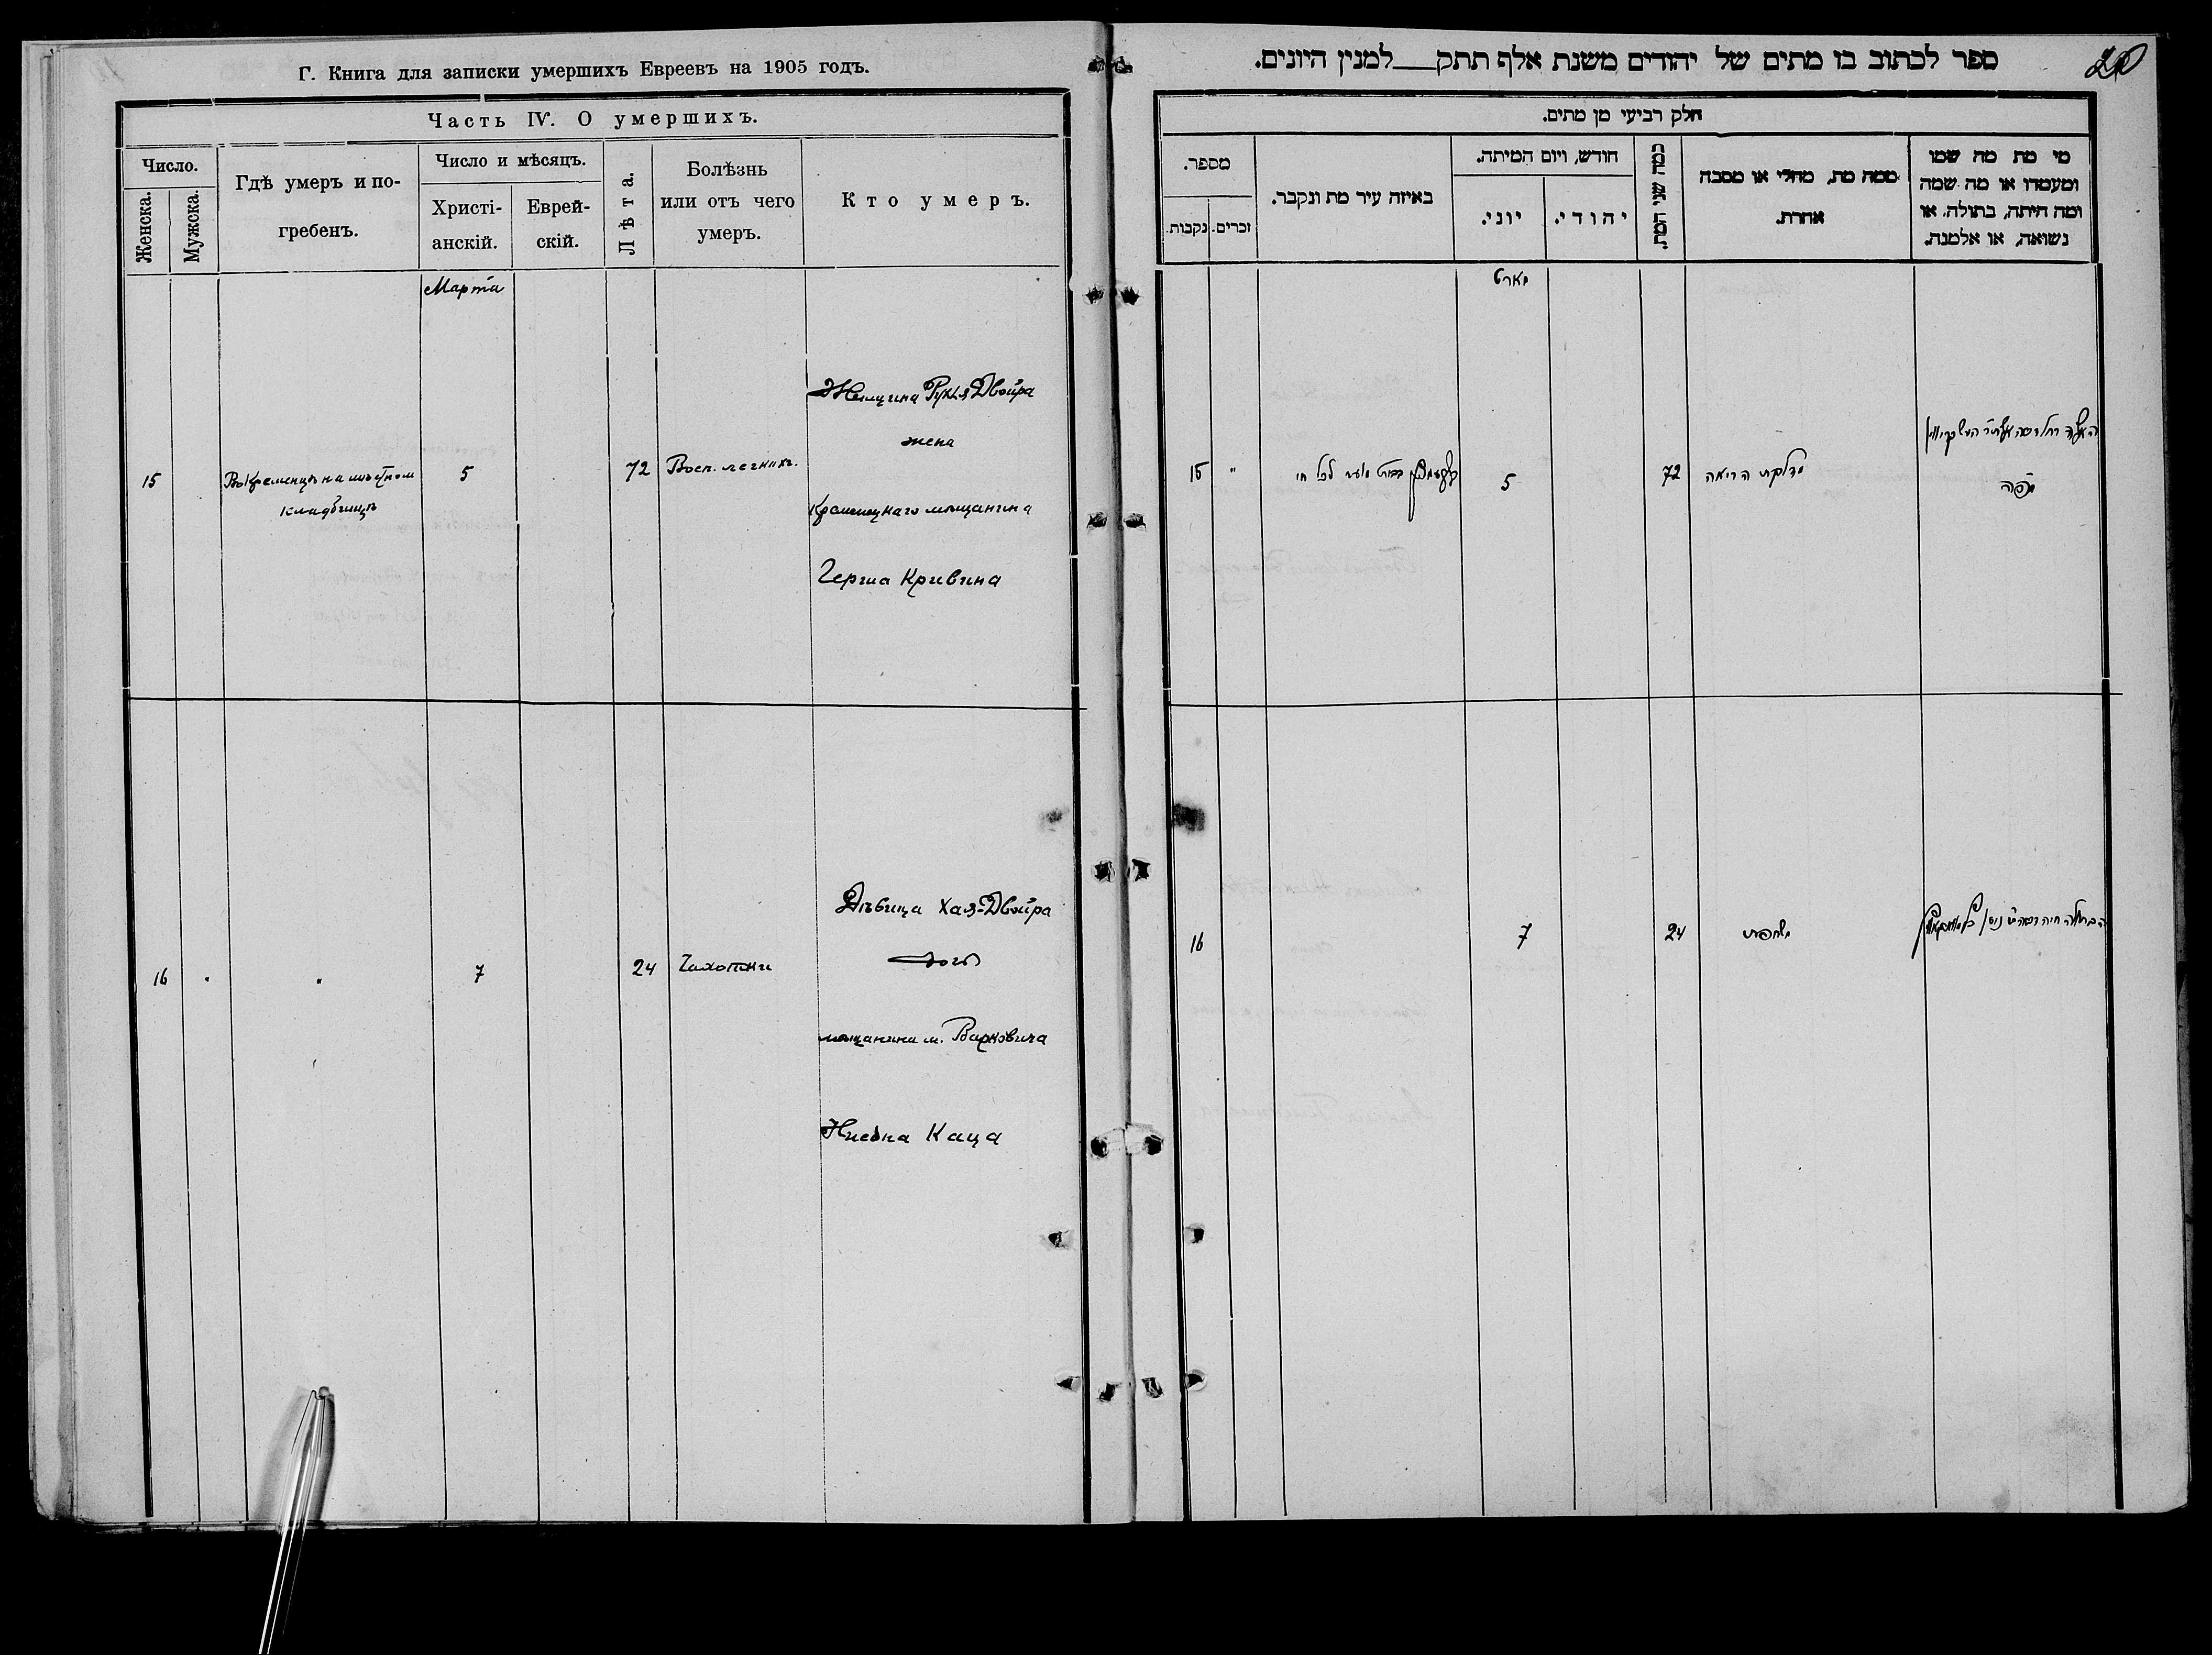 Г. Книга для записки умершихъ Евреевъ на 1905 годъ.
Часть IV. О умершихъ.
Число.
Женска.
Мужска.
Гдѣ умеръ и по-
гребенъ.
Число и мѣсяцъ.
Христі-
анскій.
Еврей-
скій.
Лѣта.
Болѣзнь
или отъ чего
умеръ.
Кто умеръ.
Марта
15
Въ Кременцѣ на мѣстном
кладбищѣ
5
72
Восп. легких.
Женщина Двойра
жена
Кременецкаго мѣщанина
Герша Кривина
16
"
"
7
24
Чахотки
Дѣвица Хая-Двойра
дочь
мѣщанина м. Варковича
Каца
ספר לכתוב בו מתים של יהודים משנת אלף תתק___למנין היונים.
20
חלק רביעי מן מתים.
מספר.
נקבות.
זכרים.
באיזה עיר מת ונקבר.
חודש, ויום המיתה.
יוני.
יהודי.
כמה שני המת.
ממה מת, מחלי או מסבה
אחרת.
מי מת מה שמו
ומעמדו או מה שמה
ומה היתה, בתולה, או
נשואה, או אלמנה.
מארט
15
"
5
72
מדלקת הריאה
16
7
24
משחפת